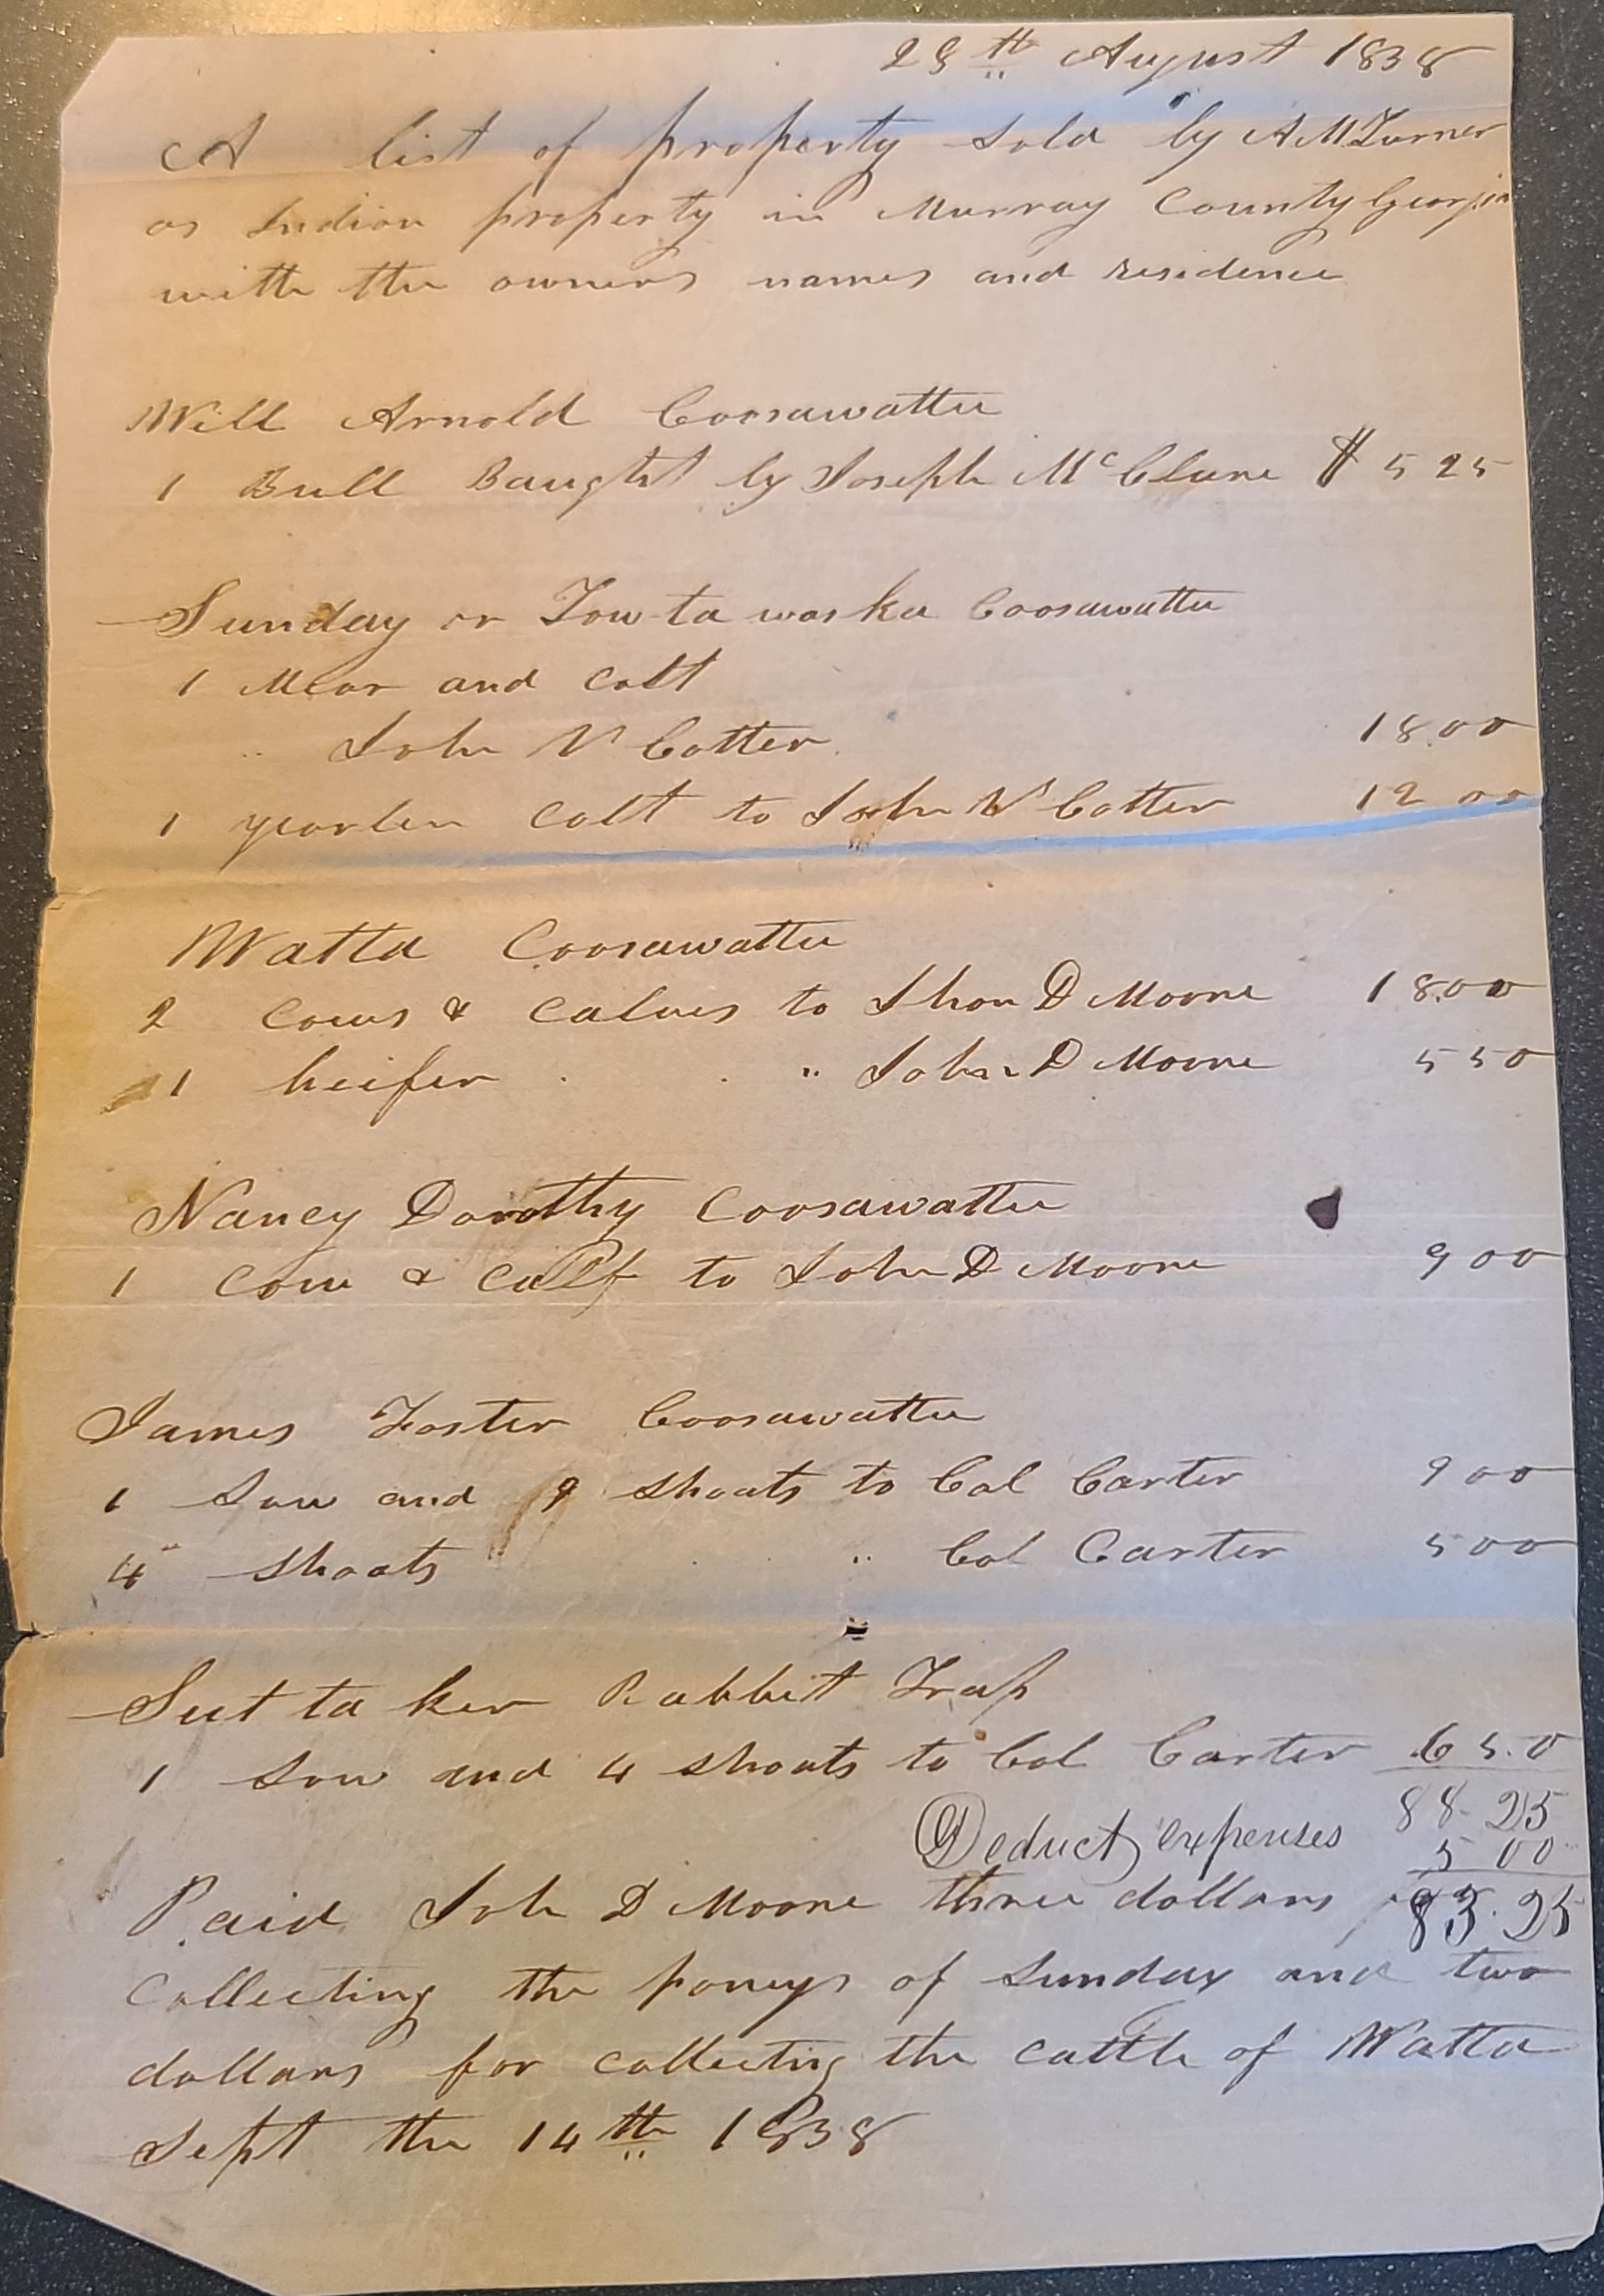 28th August 1838
A list of property sold by A M Turner
as Indian property in Murray County Georgia
with the owners names and residence
Will Arnold Coosawattee
1 Bull Baught by Joseph McClure $ 5 25
Sunday or Tow-ta was ka Coosawattee
1 Mear and Colt
" John V Cotter 18.00
1 yearlen Colt to John V Cotter 12 00
Watta Coosawattee
2 Cows & Calves to Jhon D Moore 18.00
1 heifer " John D Moore 5 50
Nancy Dorothy Coosawattee
1 Cow & Calf to John D Moore 9 00
James Foster Coosawattee
1 Sow and 9 Shoats to Col Carter 9 00
4 Shoats " Col Carter 5 00
Sut ta kee Rabbit Trap
1 Sow and 4 shoats to Col Carter 6 5.0
88 25
Deduct expenses 5 00
Paid Joh D Moore three dollars 83.25
Collecting the poneys of Sunday and two
dollars for collecting the cattle of Watta
Sept the 14th 1838